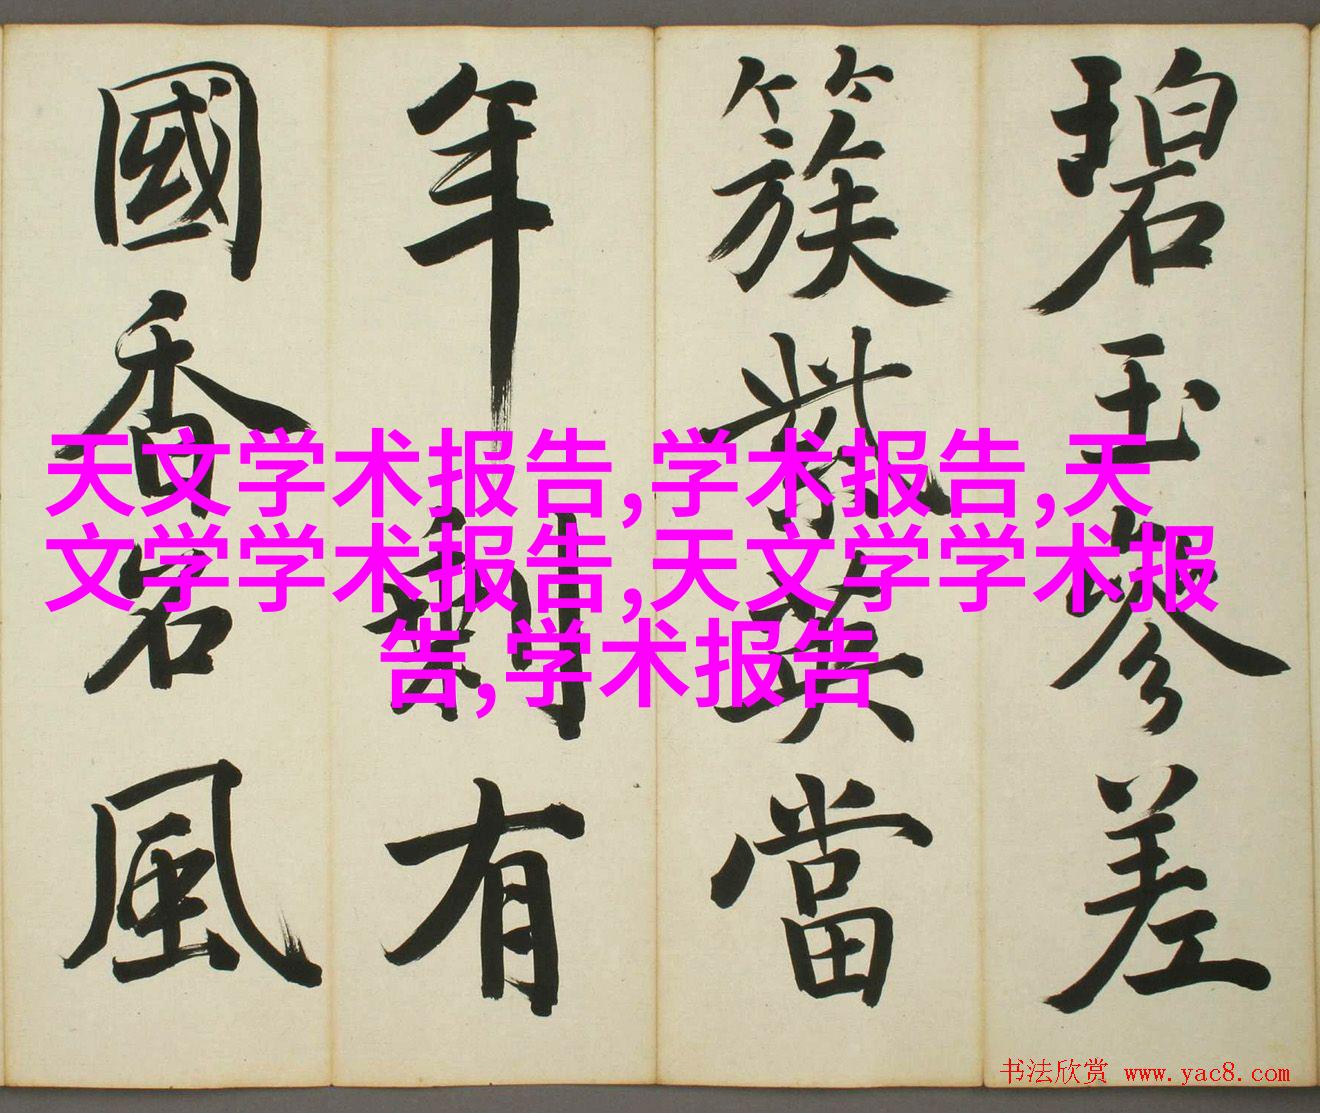 碧玉參差
簇紫英當
年剩有
國香名風
天文学术报告,学术报告,天
文学学术报告,天文学学术报
告,学术报告
书法欣赏 www.yac8.com